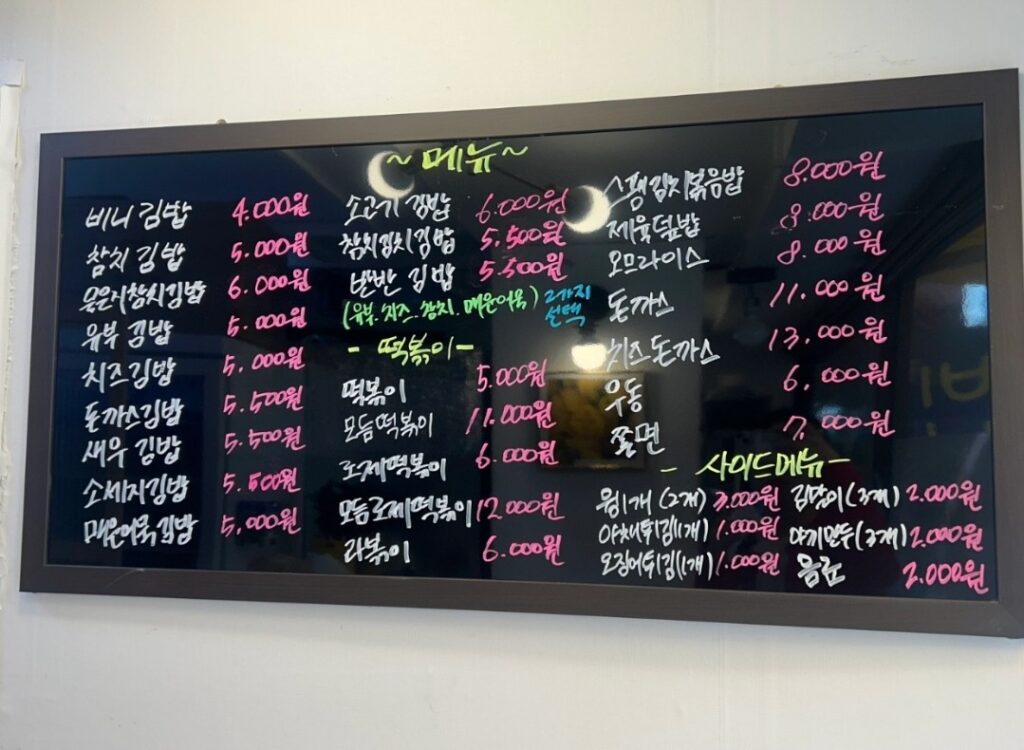 ~ 메뉴 ~
비니 김밥 4.000원
참치 김밥 5.000원
묵은지참치김밥 6.000원
유부 김밥 5.000원
치즈김밥 5.000원
돈까스김밥 5.500원
새우 김밥 5.500원
소세지김밥 5.500원
매운어묵김밥 5.000원
소고기 김밥 6.000원
참치김치김밥 5.500원
반반 김밥 5.500원
(유부. 치즈. 참치. 매운어묵) 2가지 선택
- 떡볶이 -
떡볶이 5.000원
모듬떡볶이 11.000원
로제떡볶이 6.000원
모듬로제떡볶이 12.000원
라볶이 6.000원
스팸김치볶음밥 8.000원
제육덮밥 8.000원
오므라이스 8.000원
돈까스 11.000원
치즈돈까스 13.000원
우동 6.000원
쫄면 7.000원
- 사이드메뉴 -
(2개) 3.000원 김말이(3개) 2.000원
야채튀김(1개) 1.000원 야끼만두(3개) 2.000원
오징어튀김(1개) 1.000원 음료 2.000원